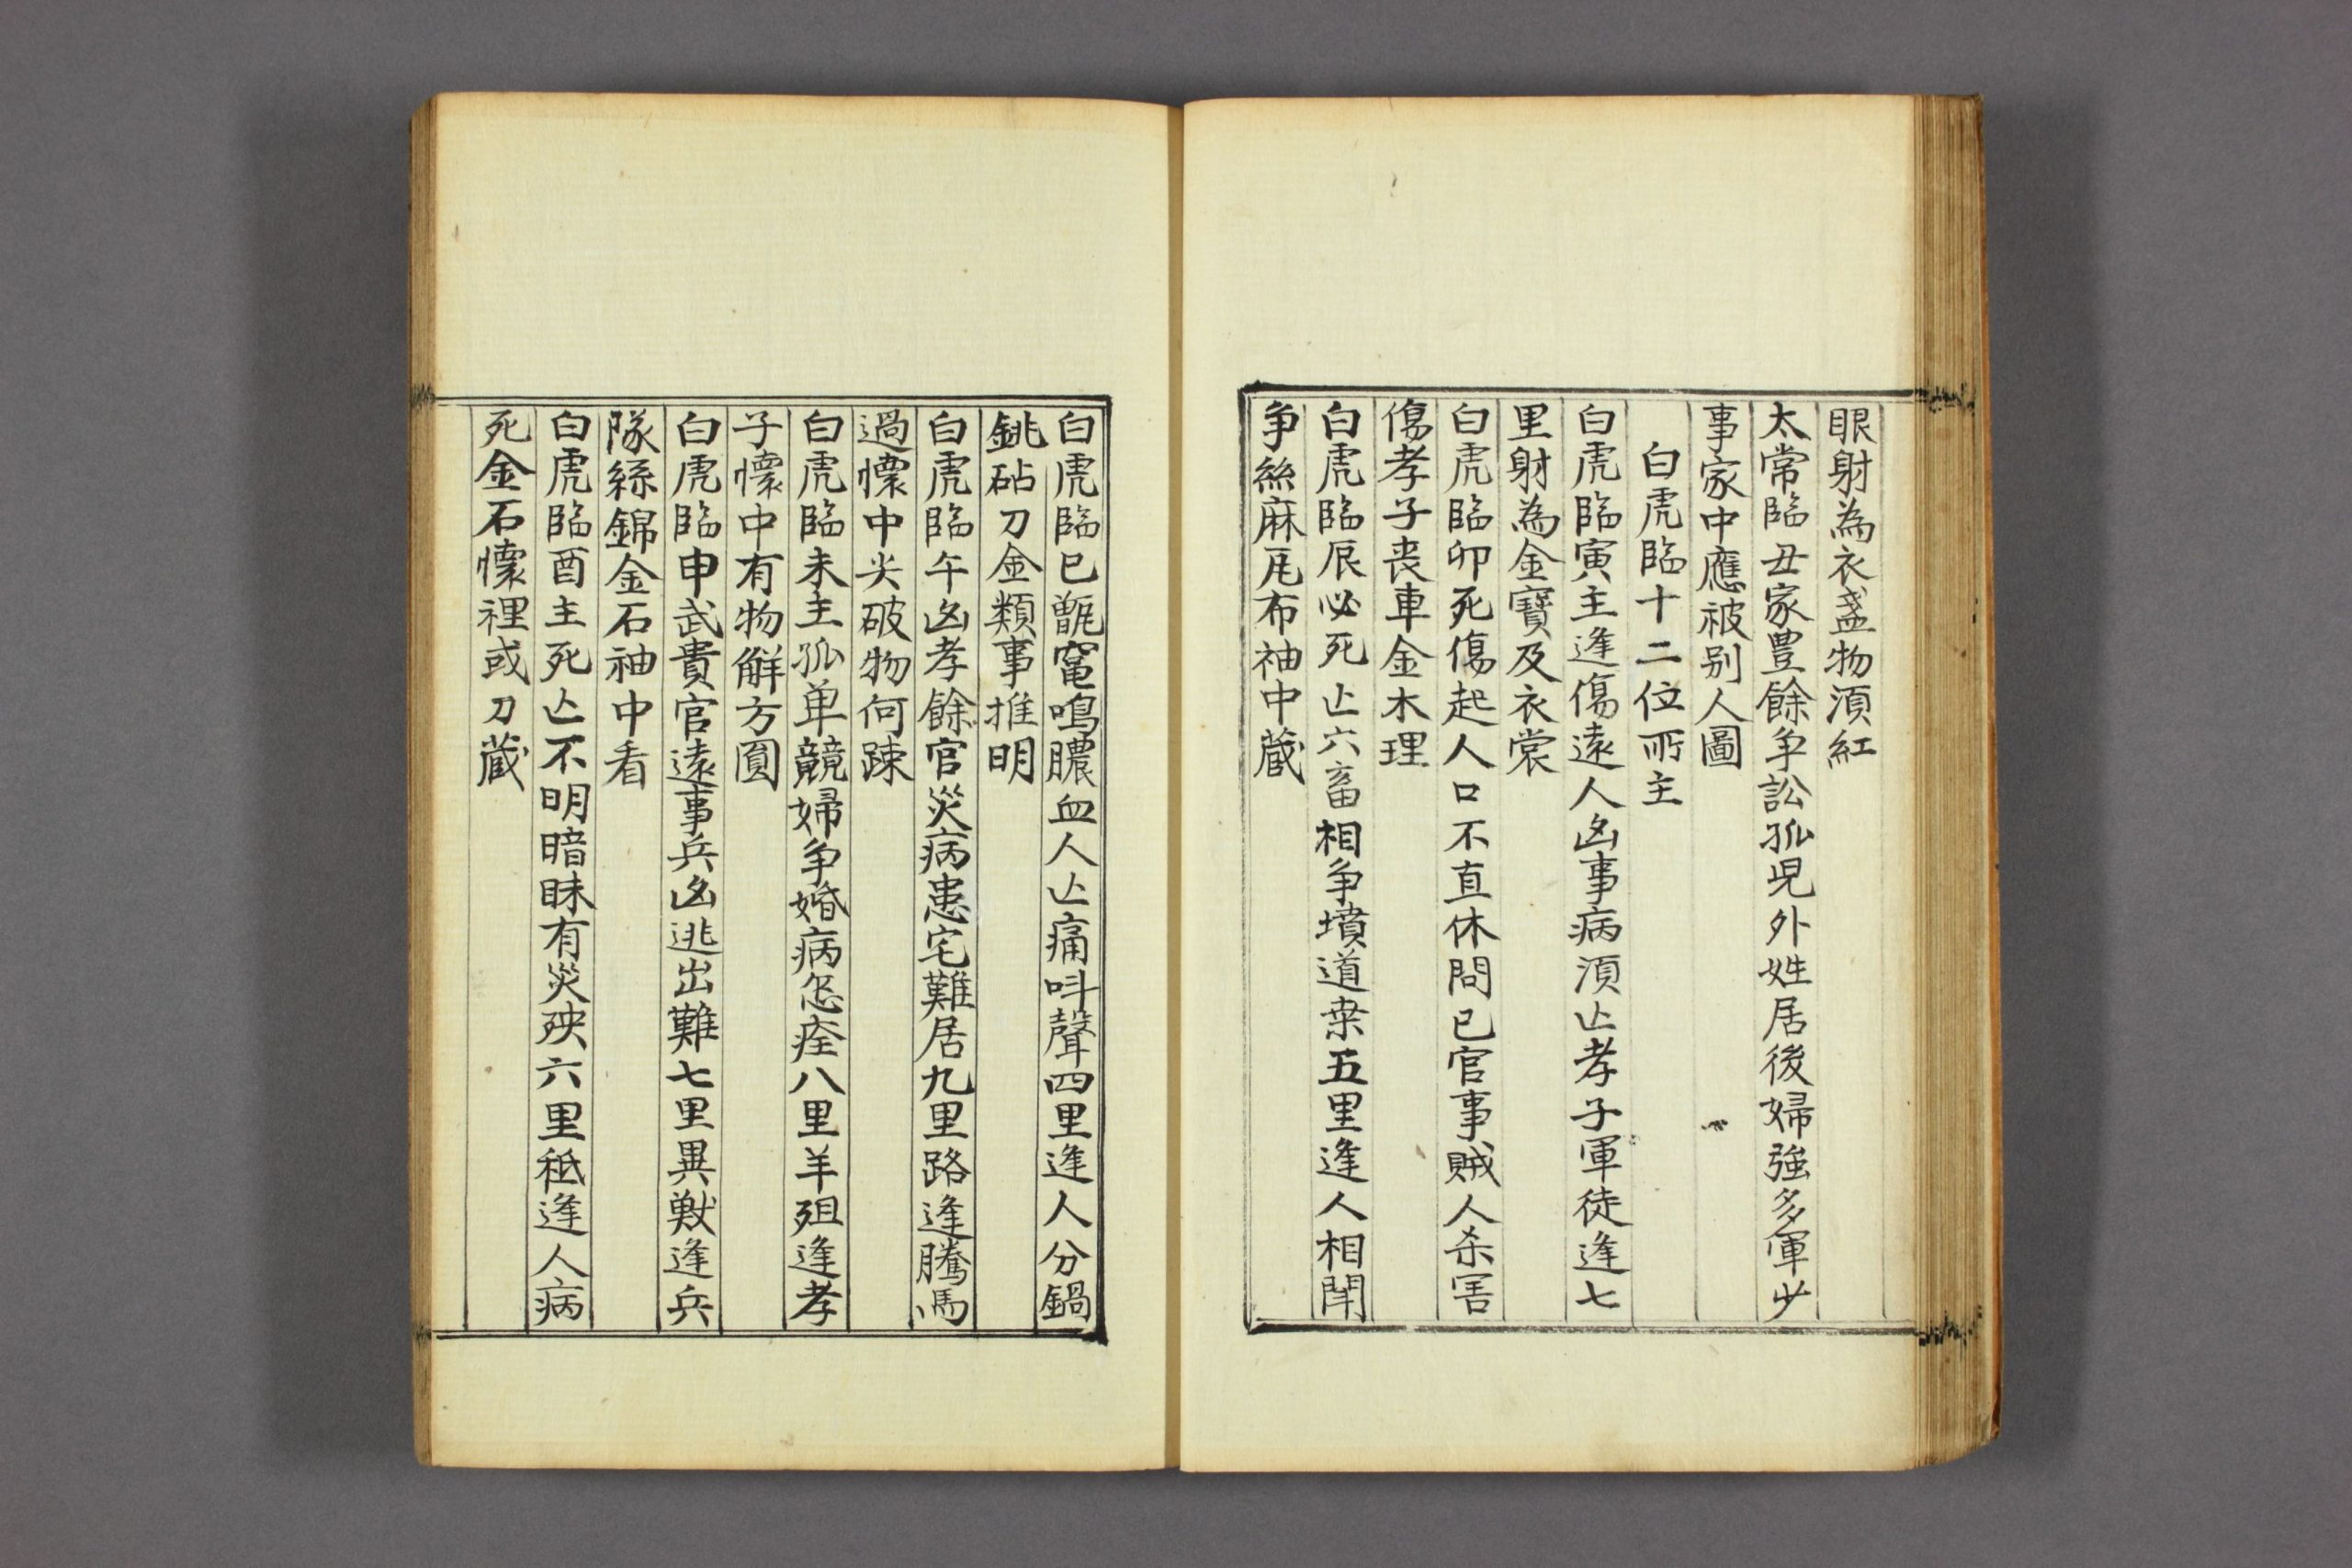 眼射為衣盞物須紅
太常臨丑家豊餘争訟孤児外姓居後婦強多軍少
事家中應被别人圖
白虎臨十二位所主
白虎臨寅主逢傷遠人凶事病須亡孝子軍徒逢七
里射為金寶及衣裳
白虎臨卯死傷起人口不直休問已官事賊人杀害
傷孝子丧車金木理
白虎臨辰必死亡六畜相争墳道桒五里逢人相鬧
争絲麻瓦布袖中蔵
白虎臨巳甑竃鳴膿血人亡痛呌聲四里逢人分鍋
銚砧刀金類事推明
白虎臨午凶孝餘官災病患宅難居九里路逢騰馬
過懐中尖破物何踈
白虎臨未主孤单競婦争婚病怨痊八里羊殂逢孝
子懐中有物觧方圓
白虎臨申武貴官遠事兵凶逃出難七里異獣逢兵
隊絲錦金石袖中看
白虎臨酉主死亡不明暗昧有災殃六里秪逢人病
死金石懐裡或刀蔵